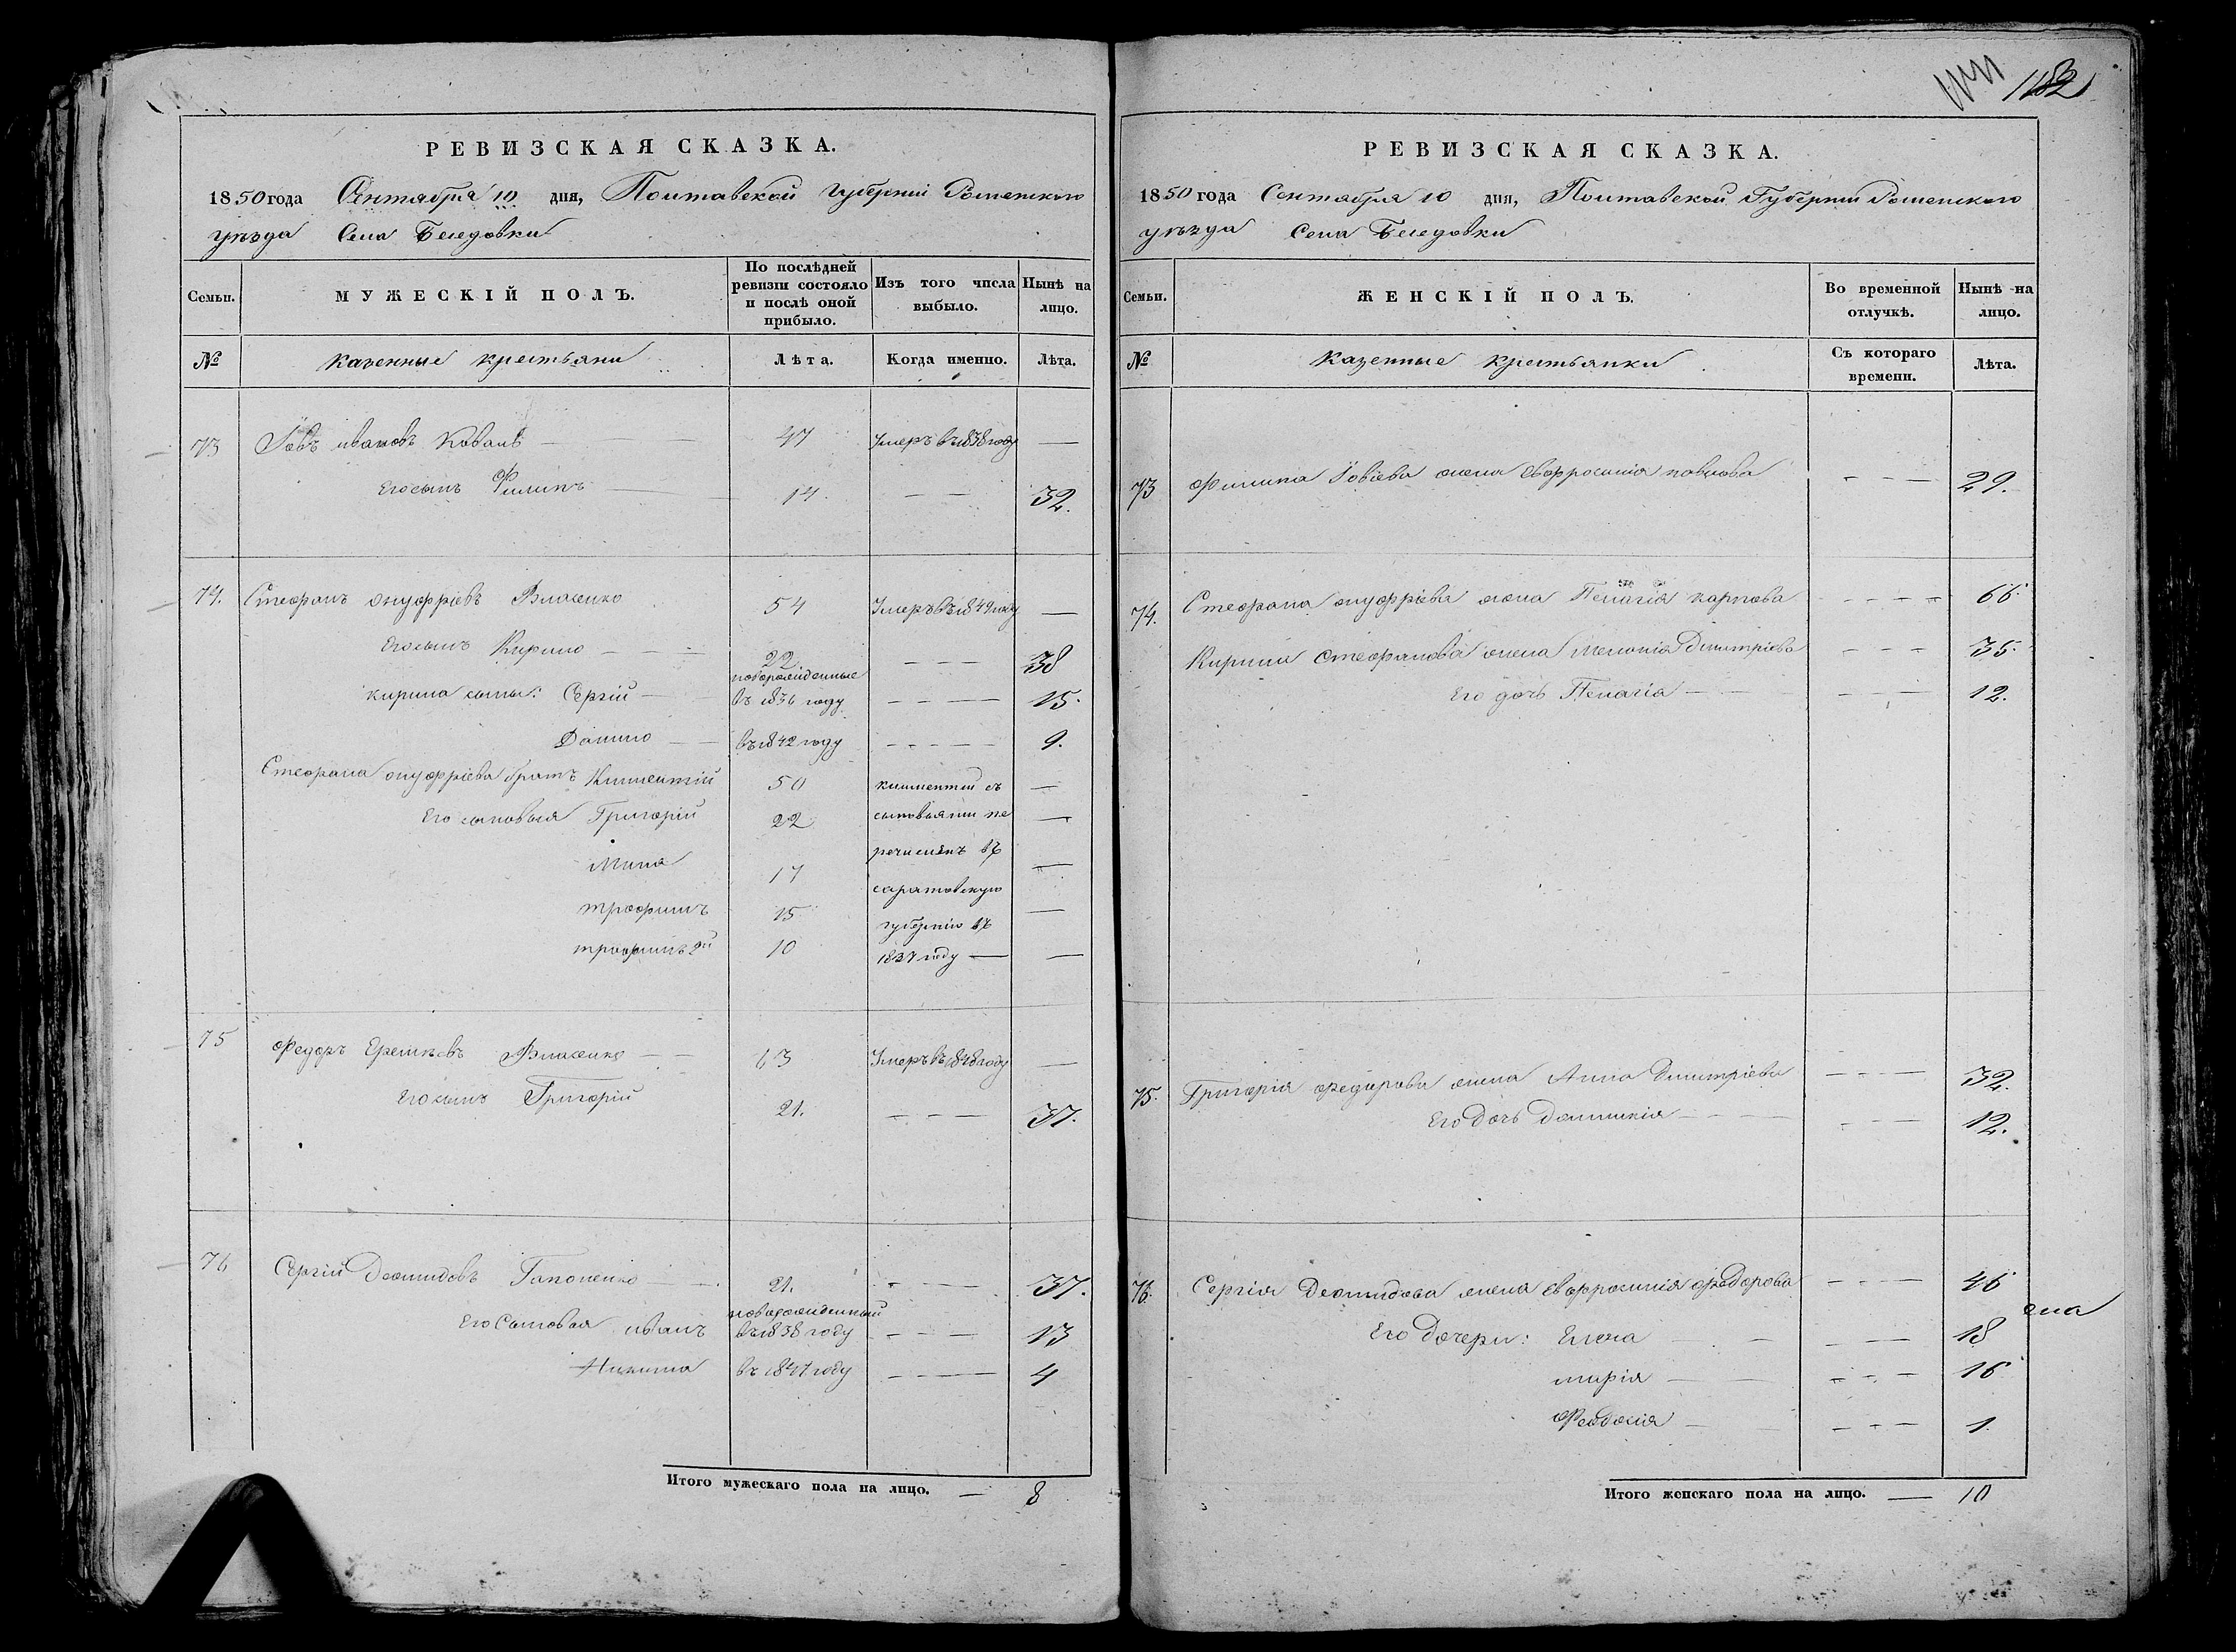 РЕВИЗСКАЯ СКАЗКА.
1850 года Сентября 10 дня, Полтавской Губерніи Роменского
уезда Села Беседовки
Семьи. МУЖЕСКІЙ ПОЛЪ. По послѣдней ревизіи состояло и послѣ оной прибыло. Изъ того числа выбыло. Нынѣ на лицо.
№ казенные крестьяни Лѣта. Когда именно. Лѣта.
73 Іовъ ивановъ Коваль 47 Умеръ въ 1838 году —
Его сынъ Филипъ 14 — — 32.
74. Стефанъ онуфріевъ Власенко 54 Умеръ въ 1849 году —
Его сынъ Кирило 22 — — — 38
новорожденные
кирила сыны: Сергій въ 1836 году 15.
Данило въ 1842 году 9.
Стефана онуфріева братъ Климентій 50 климентій съ —
Его сыновья Григорій 22 сыновьями пе —
Мина 17 речисленъ въ —
саратовскую
трофимъ 15 губернію въ —
трофимъ 2й 10 1837 году —
75 Федоръ Еремѣевъ Власенко 63 Умеръ въ 1848 году —
Его сынъ Григорій 21. — — — 37.
76 Сергій Деомидовъ Гапоненко 21. 37.
новорожденный
Его Сыновья иванъ въ 1838 году 13
Никита въ 1847 году 4
Итого мужескаго пола на лицо. — 8
1182
РЕВИЗСКАЯ СКАЗКА.
1850 года Сентября 10 дня, Полтавской Губерніи Роменского
уезда Села Беседовки
Семьи. ЖЕНСКІЙ ПОЛЪ. Во временной отлучкѣ. Нынѣ на лицо.
№ Казенные крестьянки Съ котораго времени. Лѣта.
73 Филипа Іовіева жена Евфросинія павлова 29.
74. Стефана онуфріева жена Пелагія карпова 66.
Кирили Стефанова жена Меланія Димитріева 35.
Его дочь Пелагія 12.
75. Григорія федорова жена Анна Димитріева 32.
Его Дочь Домникія 12.
76. Сергія Деомидова жена Евфросинія федорова 46
Его Дочери: Елена 18
марія 16
Феодосія 1.
Итого женскаго пола на лицо. — 10